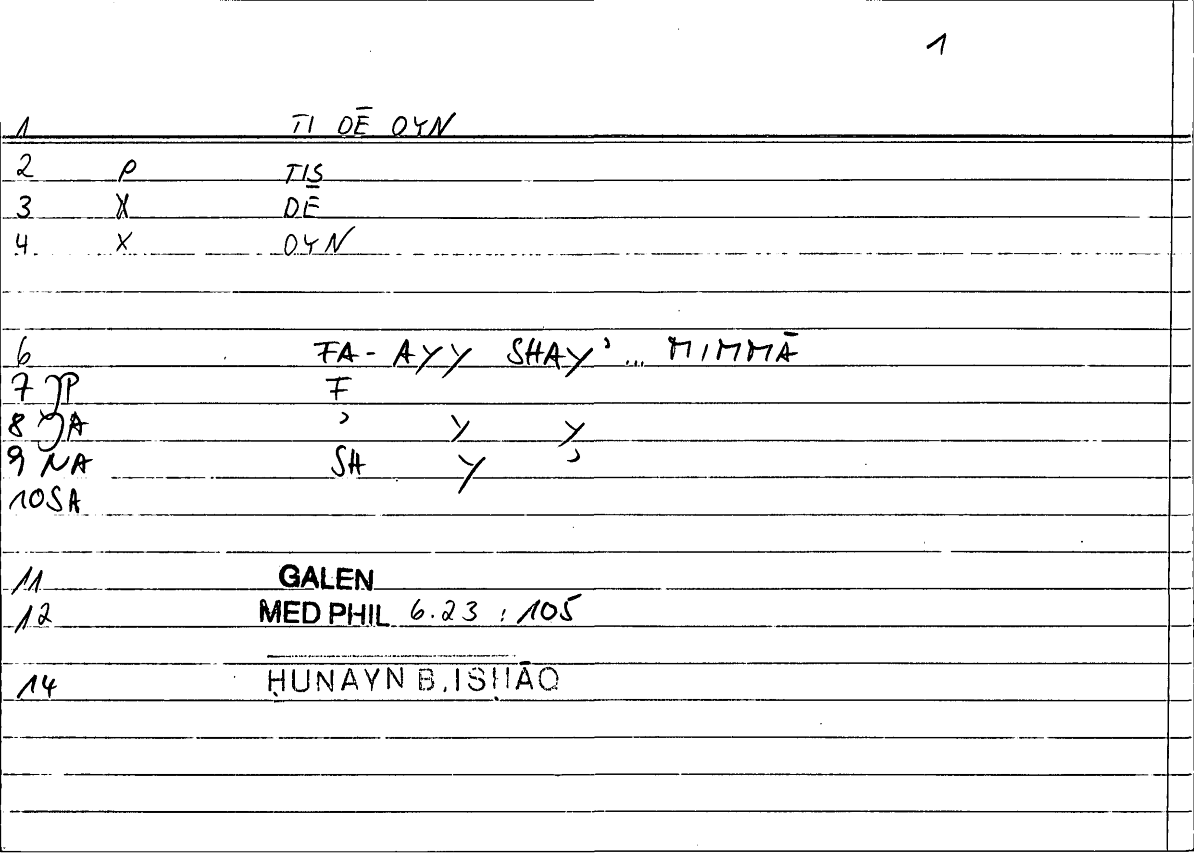 1
1 TI DĒ OYN
2 P TIS
3 X DĒ
4. X OYN
6 FA- AYY SHAY' ... MIMMĀ
7 JP F
8 JA ' Y Y
9 NA SH Y '
10 SA
11 GALEN
12 MED PHIL 6.23 : 105
14 ḤUNAYN B. ISḤĀQ